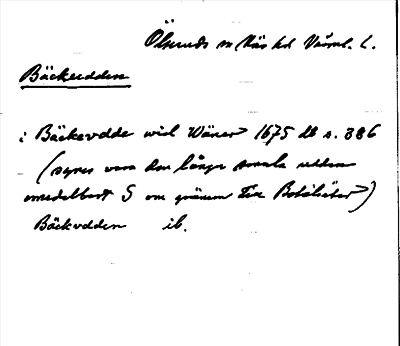 Ölseruds sn Näs hd Värml. l.
Bäckeudden
i Bäckevdde wid Wäner 1675 db s. 386
(synes vara den långa smala udden
omedelbart S om gränsen
Bäckudden ib.